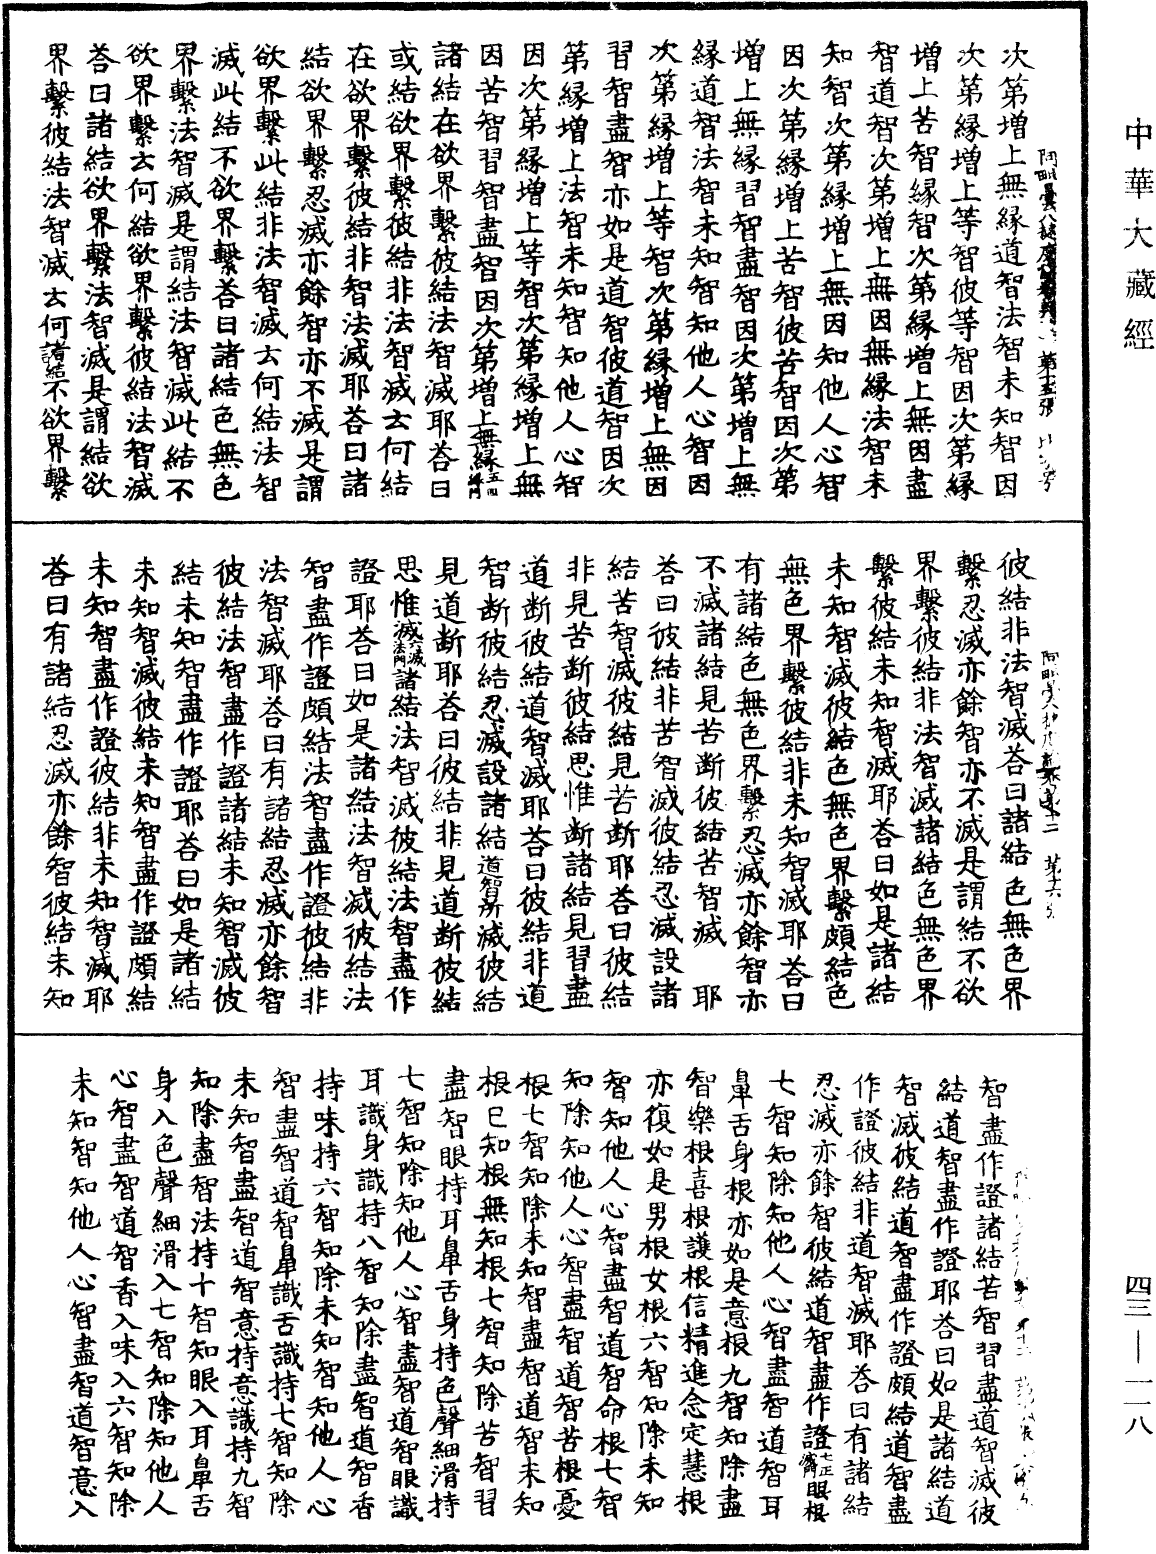 中華大藏經
次第增上無緣道智法智未知智因
次第緣增上等智彼等智因次第緣
增上苦智緣智次第緣增上無因盡
智道智次第增上無因無緣法智未
知智次第緣增上無因知他人心智
因次第緣增上苦智彼苦智因次第
增上無緣習智盡智因次第增上無
緣道智法智未知智知他人心智因
次第緣增上等智次第緣增上無因
習智盡智亦如是道智彼道智因次
第緣增上法智未知智知他人心智
因次第緣增上等智次第緣增上無
因苦智習智盡智因次第增上無緣
諸結在欲界繫彼結法智滅耶荅曰
或結欲界繫彼結非法智滅云何結
在欲界繫彼結非智法滅耶荅曰諸
結欲界繫忍滅亦餘智亦不滅是謂
欲界繫此結非法智滅云何結法智
滅此結不欲界繫荅曰諸結色無色
界繫法智滅是謂結法智滅此結不
欲界繫云何結欲界繫彼結法智滅
荅曰諸結欲界繫法智滅是謂結欲
界繫彼結法智滅云何諸結不欲界繫
彼結非法智滅荅曰諸結色無色界
繫忍滅亦餘智亦不滅是謂結不欲
界繫彼結非法智滅諸結色無色界
繫彼結未知智滅耶荅曰如是諸結
未知智滅彼結色無色界繫頗結色
無色界繫彼結非未知智滅耶荅曰
有諸結色無色界繫忍滅亦餘智亦
不滅諸結見苦断彼結苦智滅耶
荅曰彼結非苦智滅彼結忍滅設諸
結苦智滅彼結見苦断耶荅曰彼結
非見苦断彼結思惟断諸結見習盡
道断彼結道智滅耶荅曰彼結非道
智断彼結忍滅設諸結道智所滅彼結
見道断耶荅曰彼結非見道断彼結
思惟滅六滅法門諸結法智滅彼結法智盡作
證耶荅曰如是諸結法智滅彼結法
智盡作證頗結法智盡作證彼結非
法智滅耶荅曰有諸結忍滅亦餘智
彼結法智盡作證諸結未知智滅彼
結未知智盡作證耶荅曰如是諸結
未知智滅彼結未知智盡作證頗結
未知智盡作證彼結非未知智滅耶
荅曰有諸結忍滅亦餘智彼結未知
智盡作證諸結苦智習盡道智滅彼
結道智盡作證耶荅曰如是諸結道
智滅彼結道智盡作證頗結道智盡
作證彼結非道智滅耶荅曰有諸結
忍滅亦餘智彼結道智盡作證眼根
七智知除知他人心智盡智道智耳
鼻舌身根亦如是意根九智知除盡
智樂根喜根護根信精進念定慧根
亦復如是男根女根六智知除未知
智知他人心智盡智道智命根七智
知除知他人心智盡智道智苦根憂
根七智知除未知智盡智道智未知
根已知根無知根七智知除苦智習
盡智眼持耳鼻舌身持色聲細滑持
七智知除知他人心智盡智道智眼識
耳識身識持八智知除盡智道智香
持味持六智知除未知智知他人心
智盡智道智鼻識舌識持七智知除
未知智盡智道智意持意識持九智
知除盡智法持十智知眼入耳鼻舌
身入色聲細滑入七智知除知他人
心智盡智道智香入味入六智知除
未知智知他人心智盡智道智意入
四三—一一八